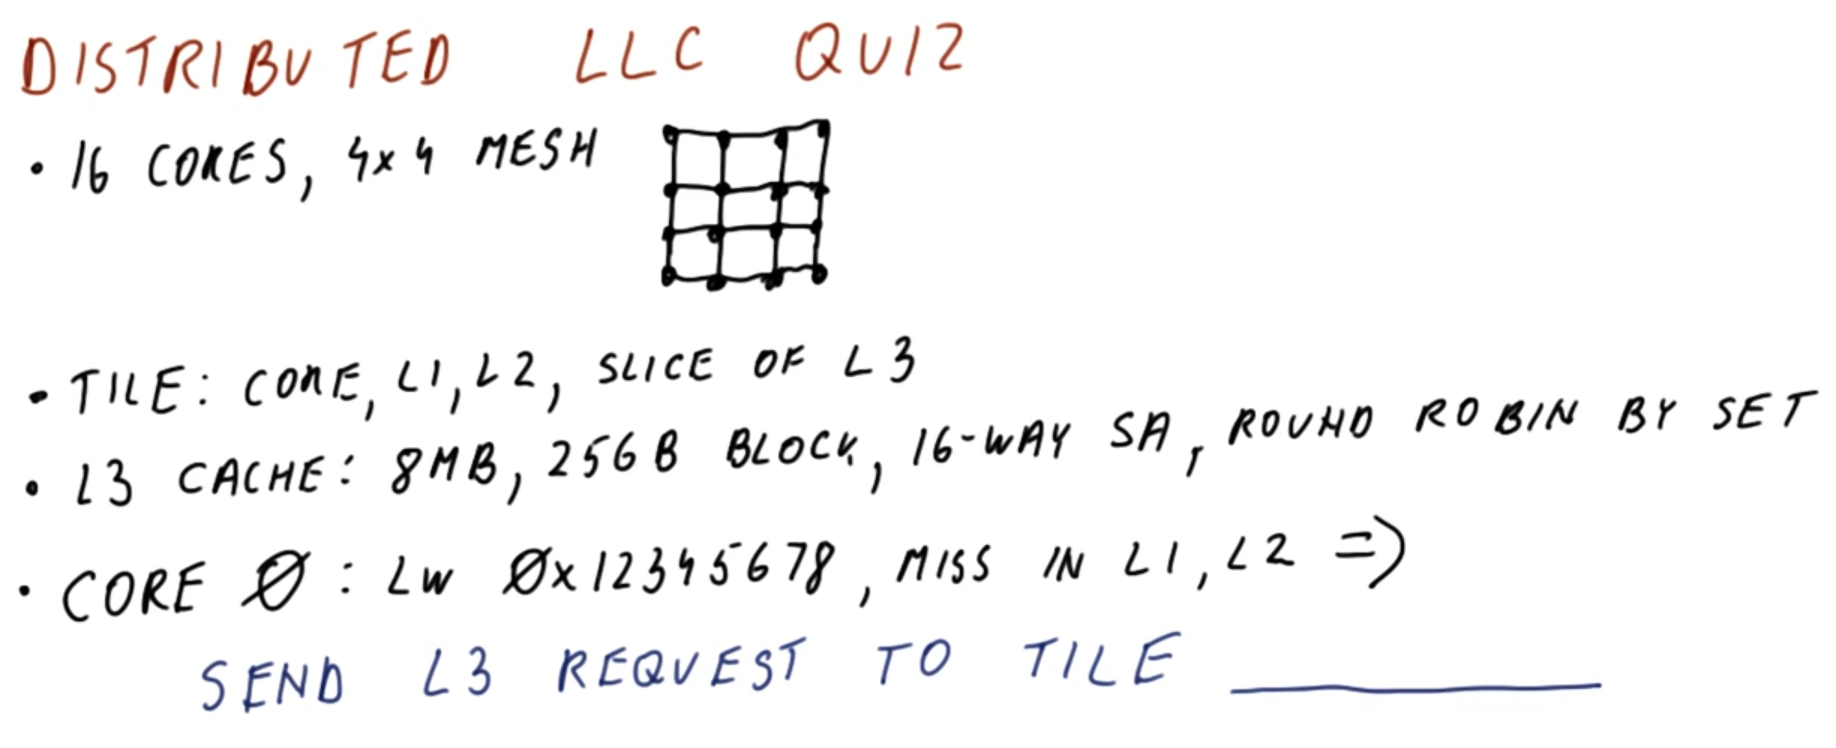 DISTRIBUTED LLC QUIZ
• 16 CORES, 4x4 MESH
• TILE: CORE, L1, L2, SLICE OF L3
• L3 CACHE: 8MB, 256B BLOCK, 16-WAY SA, ROUND ROBIN BY SET
• CORE Ø: LW Øx12345678, MISS IN L1, L2 =>
SEND L3 REQUEST TO TILE ________